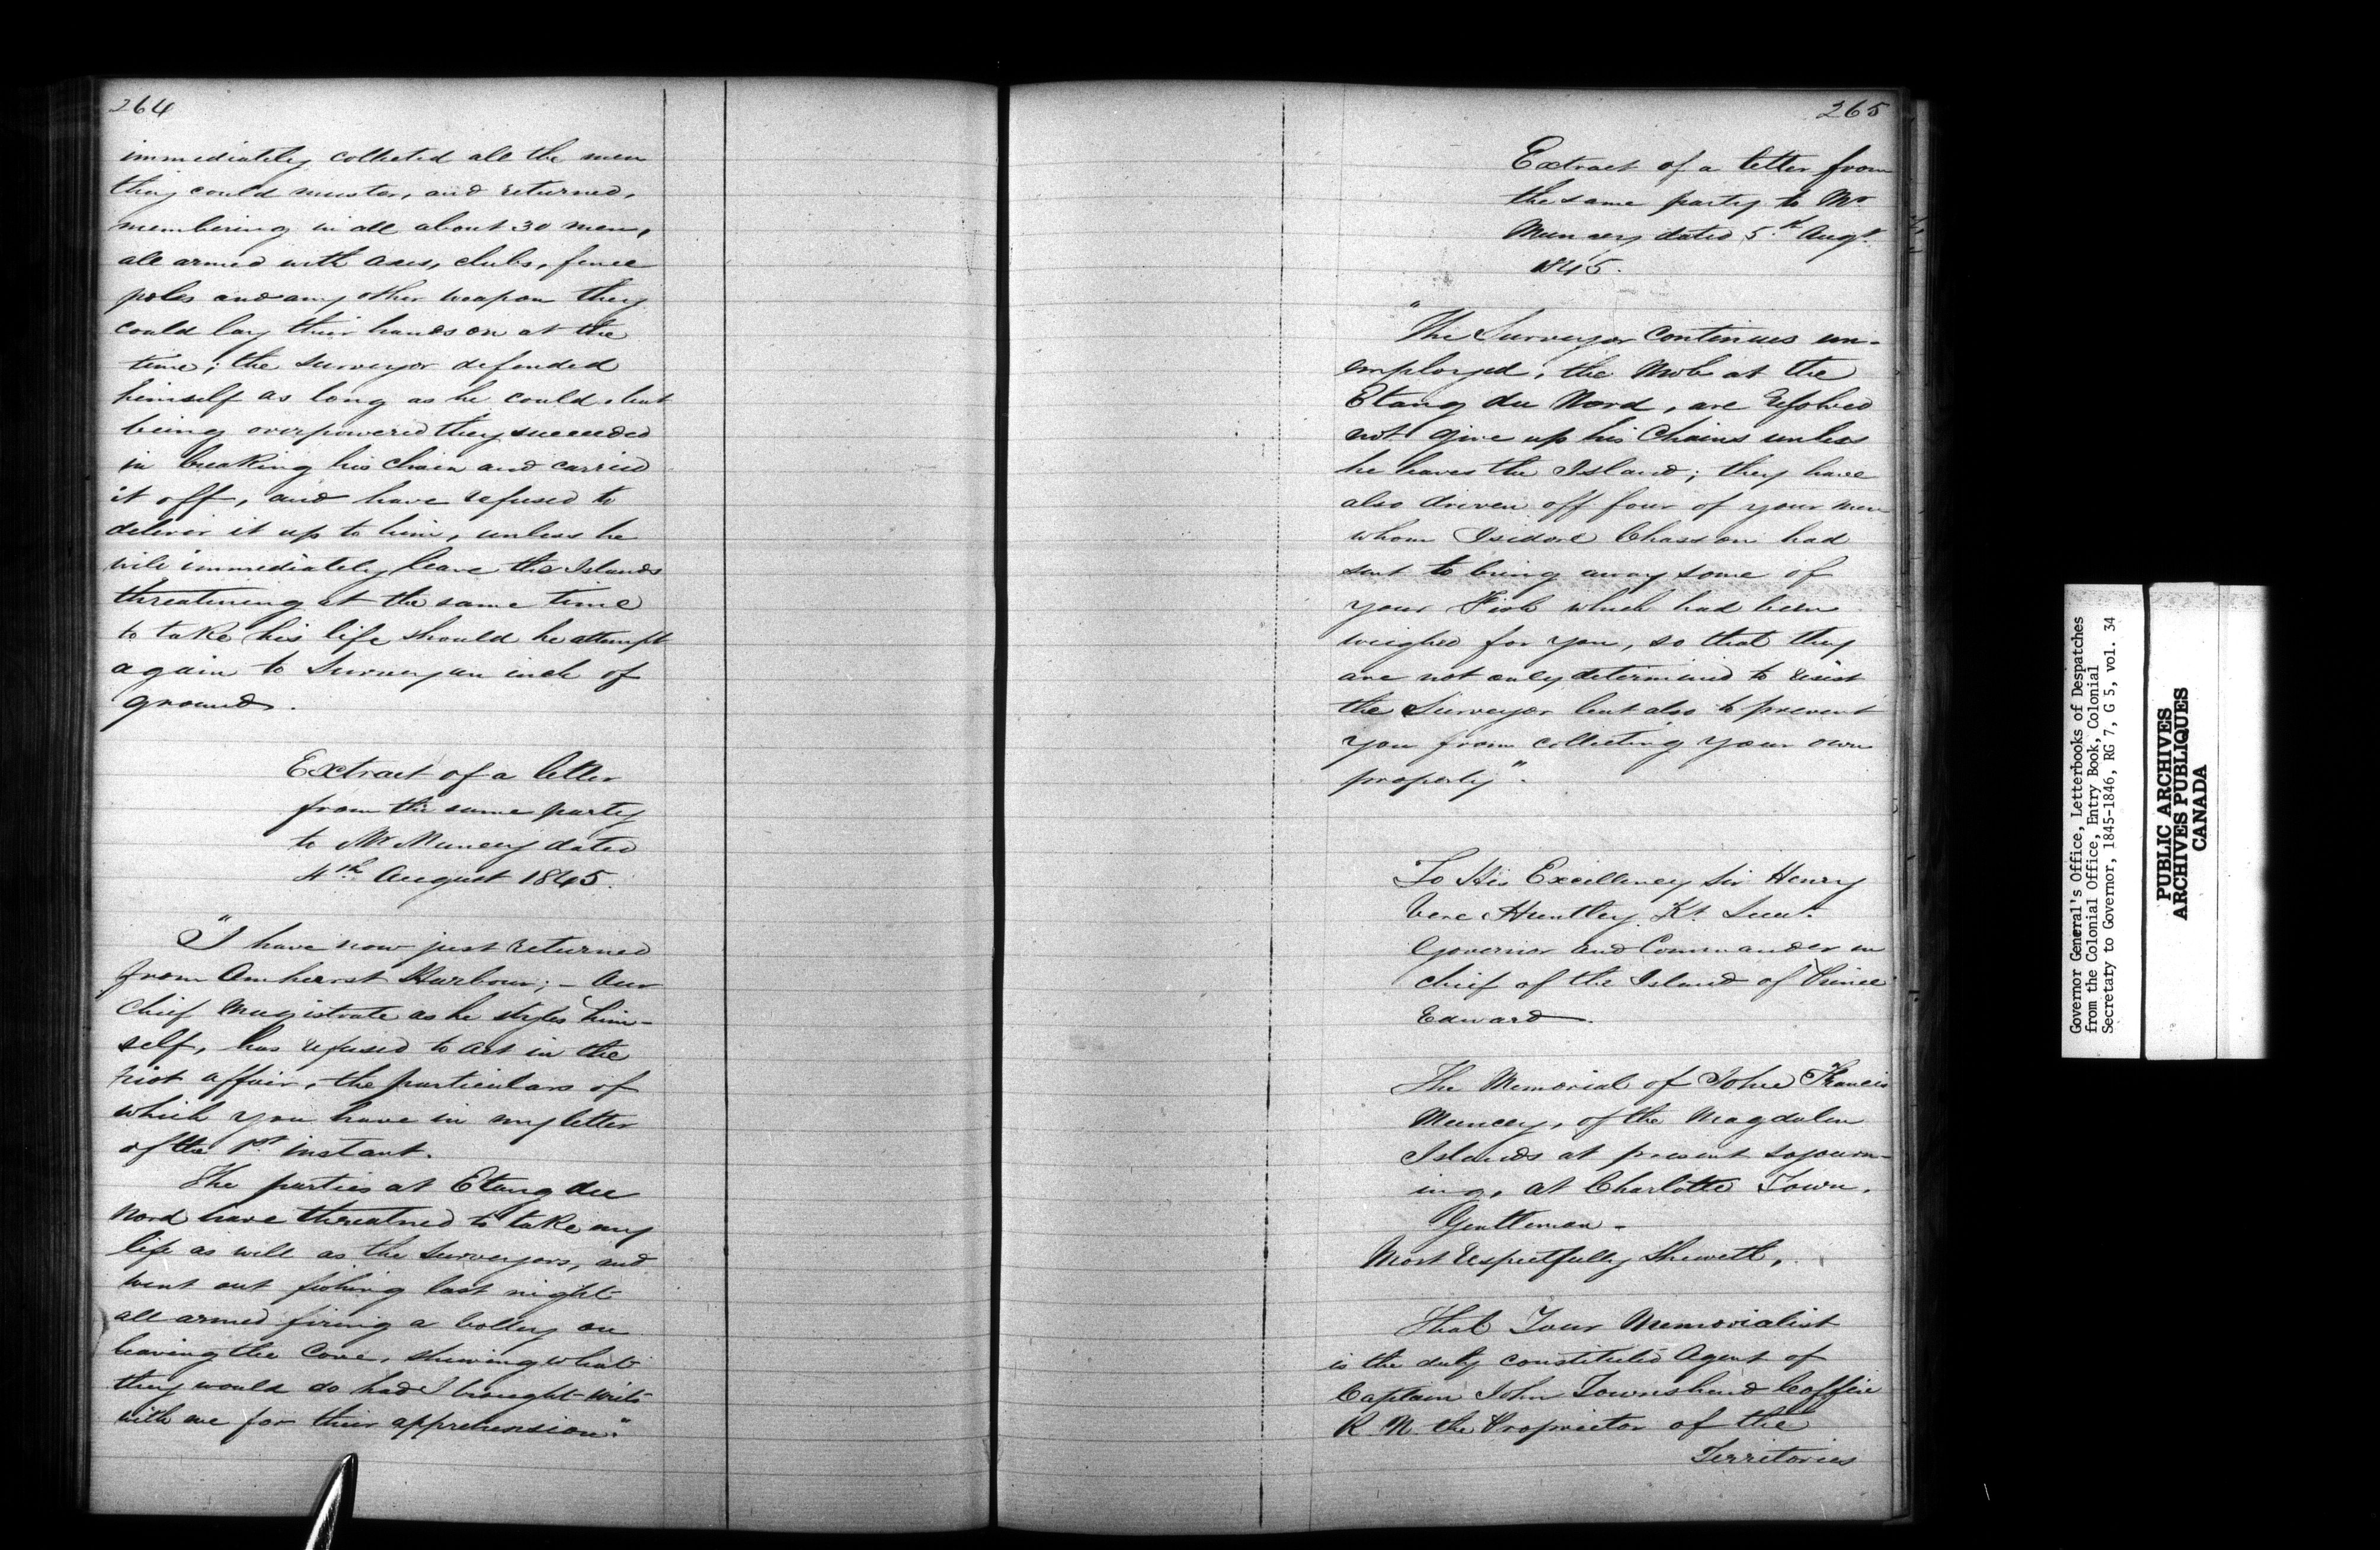 264
immediately collected all the men
they could muster, and returned,
membering in all about 30 men,
all armed with axes, clubs, fence
poles and any other weapon they
could lay their hands on at the
time; the surveyor defended
himself as long as he could, but
being overpowered they succeeded
in breaking his chain and carried
it off, and have refused to
deliver it up to him, unless he
will immediately leave the Islands
threatening at the same time
to take his life should he attempt
again to Survey an inch of
ground.
Extract of a letter
from the same party
to Mr Muncey dated
4th August 1845.
"I have now just returned
from Amherst Harbour; – Our
Chief Magistrate as he styles him-
self, has refused to act in the
riot affair, the particulars of
which you have in my letter
of the 1st instant.
The parties at Etang du
Nord have threatned to take my
life as well as the Surveyors, and
went out fishing last night
all armed firing a volley on
leaving the Cove, shewing what
they would do had I brought writs
with me for their apprehension."
265
Extract of a letter from
the same party to Mr
Muncey dated 5th Augt.
1845.
"The Surveyor continues un-
employed, the Mob at the
Etang du Nord, are resolved
not give up his Chains unless
he leaves the Island; they have
also driven off four of your men
whom Isidore Chasson had
sent to bring away some of
your Fish which had been
weighed for you, so that they
are not only determined to resist
the Surveyor but also to prevent
you from collecting your own
property".
To His Excellency Sir Henry
Vere Huntley Kt. Lieut.
Governor and Commander in
chief of the Island of Prince
Edward.
The Memorial of John Francis
Muncey, of the Magdalen
Islands at present sojourn-
ing, at Charlotte Town,
Gentleman –
Most respectfully Sheweth,
That Your Memorialist
is the duly constituted Agent of
Captain John Townshend Coffin
R. N. the Proprietor of the
Territories
Governor General's Office, Letterbooks of Despatches
from the Colonial Office, Entry Book, Colonial
Secretary to Governor, 1845-1846, RG 7, G 5, vol. 34
PUBLIC ARCHIVES
ARCHIVES PUBLIQUES
CANADA